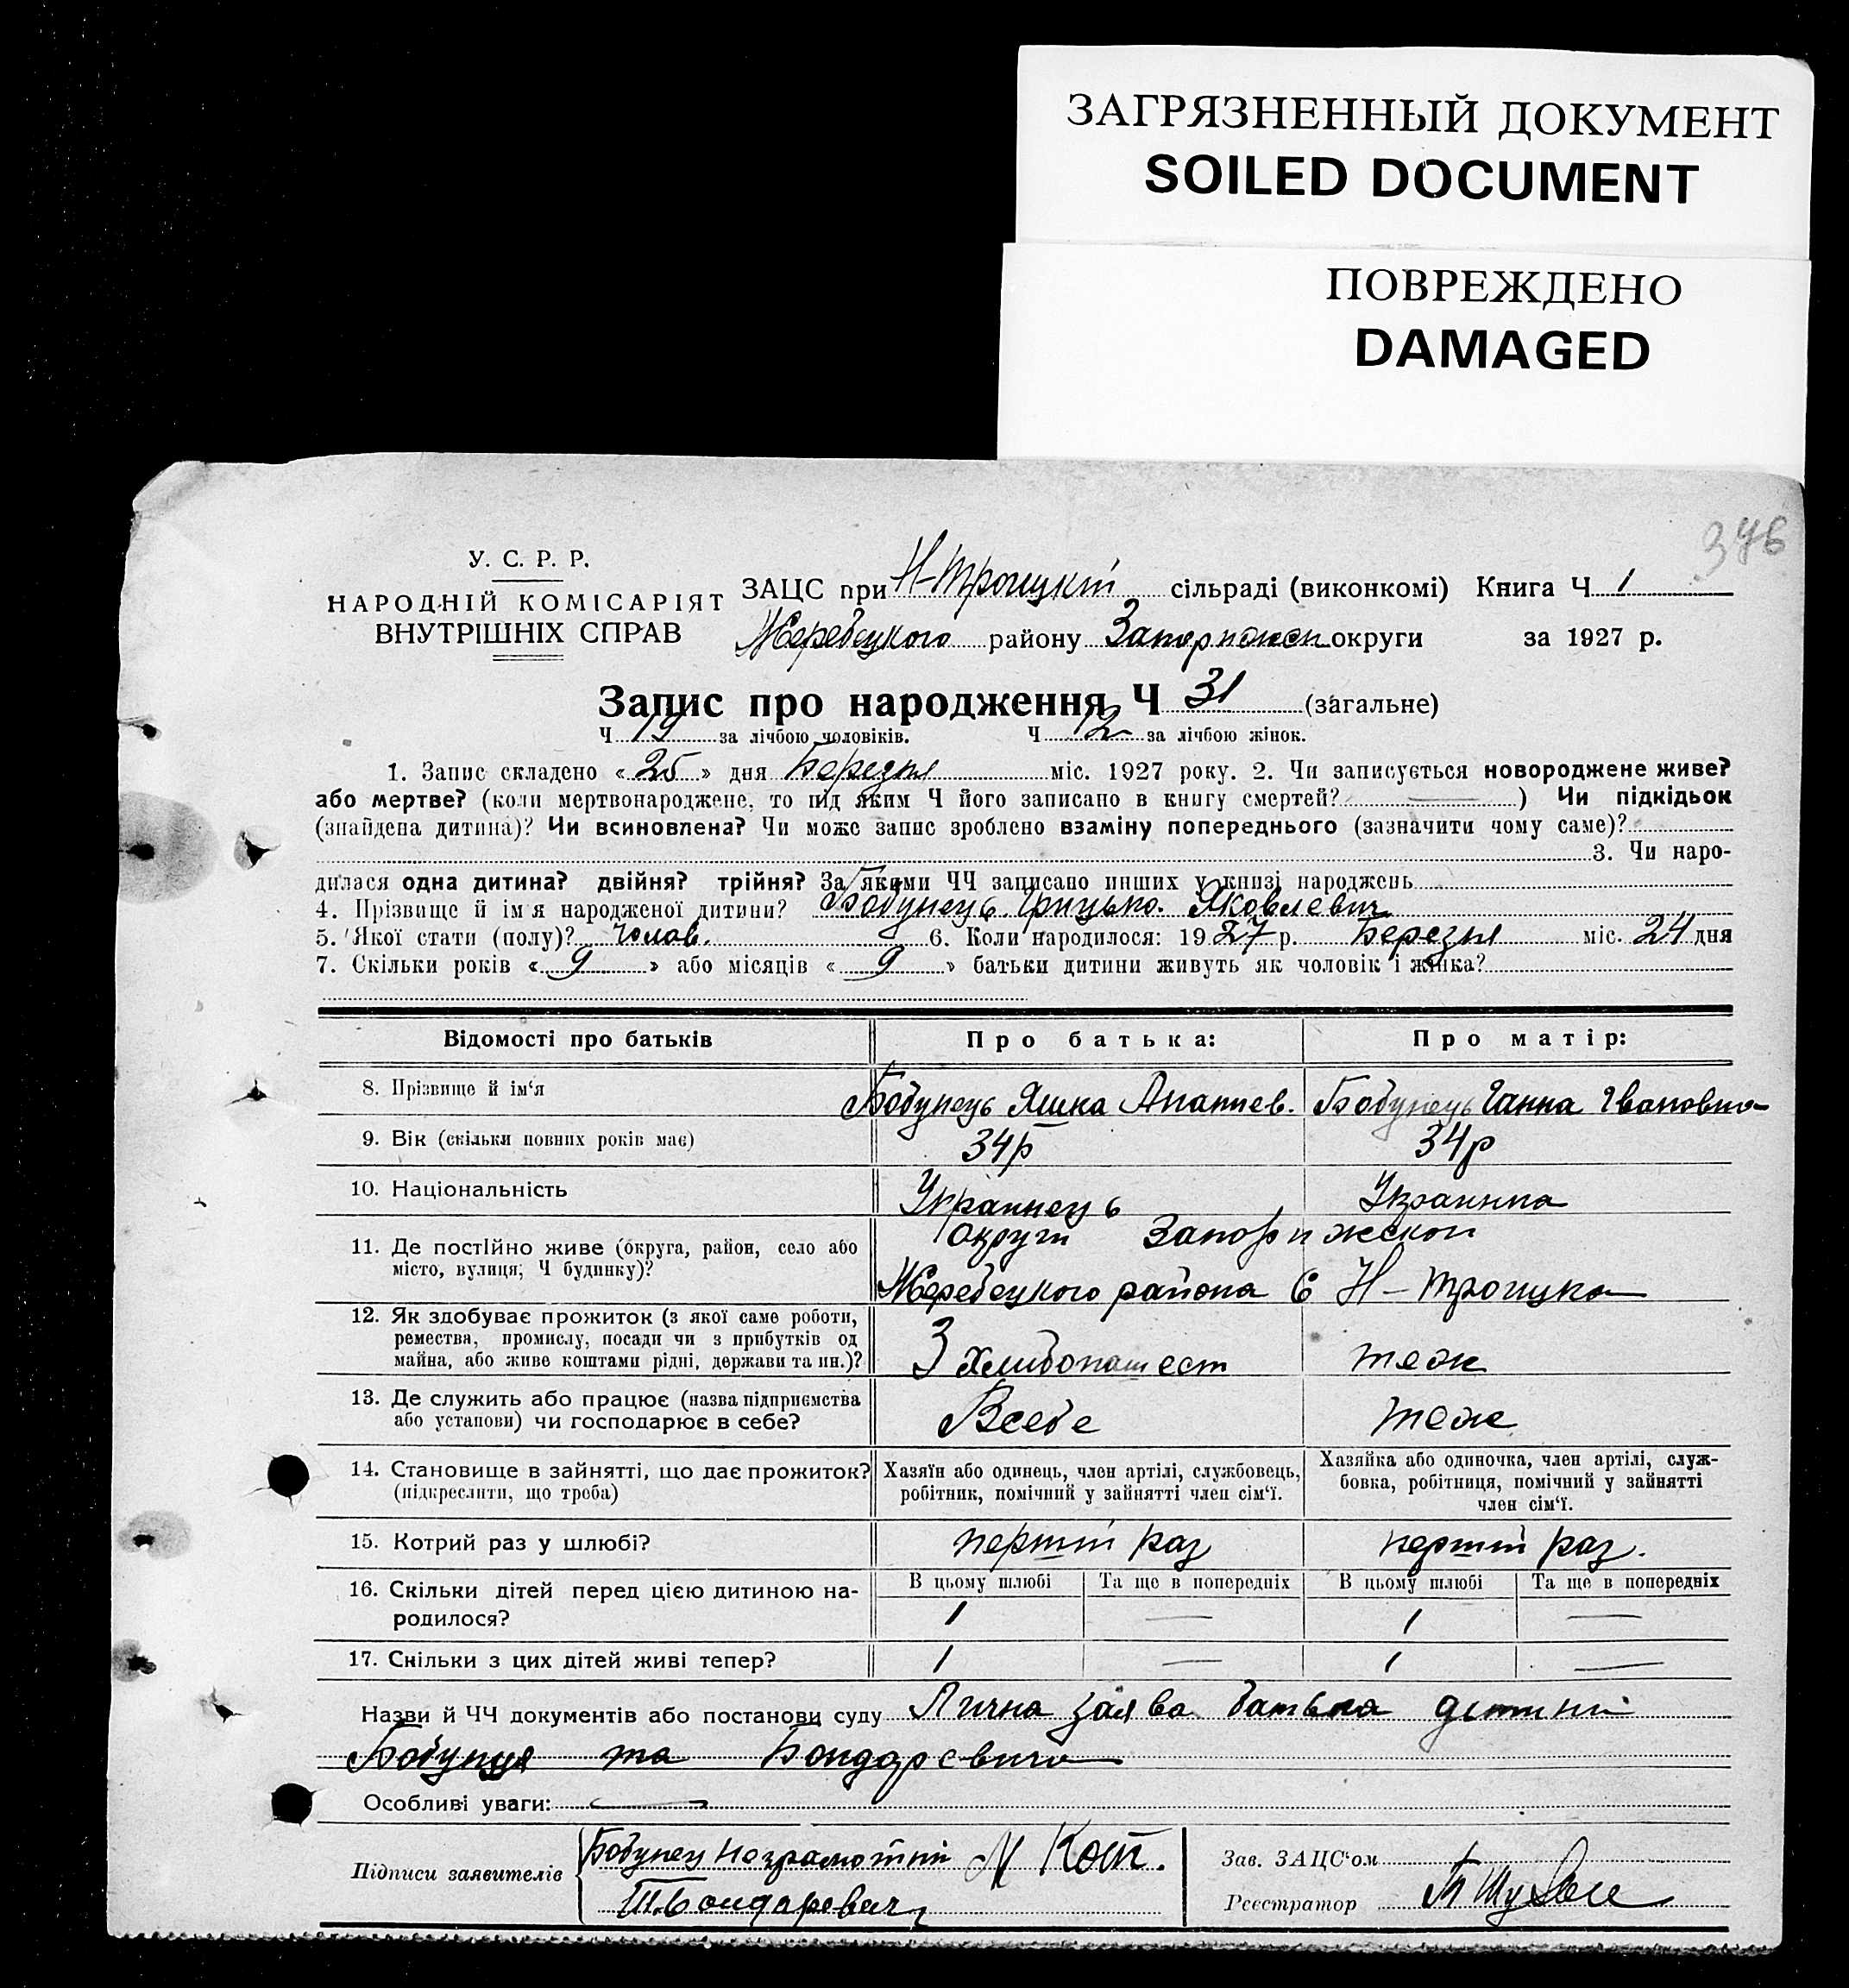 ЗАГРЯЗНЕННЫЙ ДОКУМЕНТ
SOILED DOCUMENT
ПОВРЕЖДЕНО
DAMAGED
376
У. С. Р. Р.
НАРОДНІЙ КОМІСАРІЯТ
ВНУТРІШНІХ СПРАВ
ЗАЦС при Н-Троицкій сільраді (виконкомі) Книга Ч 1
Жеребецкого району Запорижск округи за 1927 р.
Запис про народження Ч 31 (загальне)
Ч 19 за лічбою чоловіків. Ч 12 за лічбою жінок.
1. Запис складено « 25 » дня Березня міс. 1927 року. 2. Чи записується новороджене живе?
або мертве? (коли мертвонароджене, то під яким Ч його записано в книгу смертей? —) Чи підкідьок
(знайдена дитина)? Чи всиновлена? Чи може запис зроблено взаміну попереднього (зазначити чому саме)?
3. Чи наро-
дилася одна дитина? двійня? трійня? За якими ЧЧ записано инших у книзі народжень
4. Прізвище й ім'я народженої дитини? Бобунець Грицько. Яковлевич
5. Якої стати (полу)? Чолов. 6. Коли народилося: 1927 р. Березня міс. 24 дня
7. Скільки років « 9 » або місяців « 9 » батьки дитини живуть як чоловік і жінка?
Відомості про батьків Про батька: Про матір:
8. Прізвище й ім'я Бобунець Яшка Апаниев. Бобунець Ганна Ивановна
9. Вік (скільки повних років має) 34р 34р
10. Національність Украинець Украинка
11. Де постійно живе (округа, район, село або округи Запорижской
місто, вулиця; Ч будинку)? Жеребецкого района С Н-Троицка
12. Як здобуває прожиток (з якої саме роботи,
ремества, промислу, посади чи з прибутків од
майна, або живе коштами рідні, держави та ин.)? З хлибопашест теж
13. Де служить або працює (назва підприємства
або установи) чи господарює в себе? Всебе теж
14. Становище в зайнятті, що дає прожиток?
(підкреслити, що треба)
Хазяїн або одинець, член артілі, службовець,
робітник, помічний у зайнятті член сім'ї.
Хазяйка або одиночка, член артілі, служ-
бовка, робітниця, помічний у зайнятті
член сім'ї.
15. Котрий раз у шлюбі? перший раз перший раз.
16. Скільки дітей перед цією дитиною на-
родилося?
В цьому шлюбі Та ще в попередніх В цьому шлюбі Та ще в попередніх
1 — 1 —
17. Скільки з цих дітей живі тепер? 1 — 1 —
Назви й ЧЧ документів або постанови суду Лична заява батька детини
Бобунця та Бондаревича
Особливі уваги: —
Підписи заявителів Бобунец неграмотній
Т. Бондаревич
Зав. ЗАЦС'ом
Реєстратор